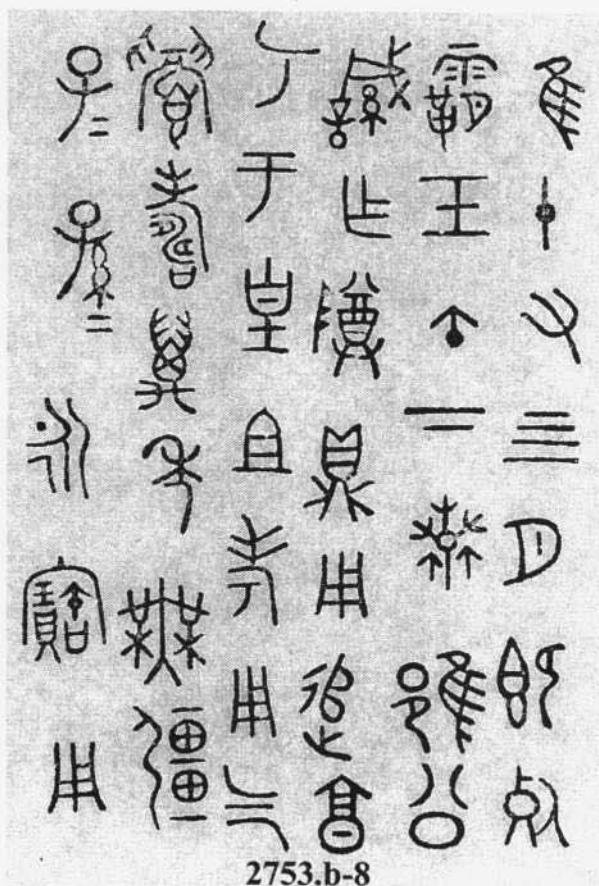 隹十又四月既死
霸壬午下蠚雍公
緘乍尊鼎用追享
丂于皇且考用气
眉壽萬年無彊
子=孫=永寶用
2753.b-8